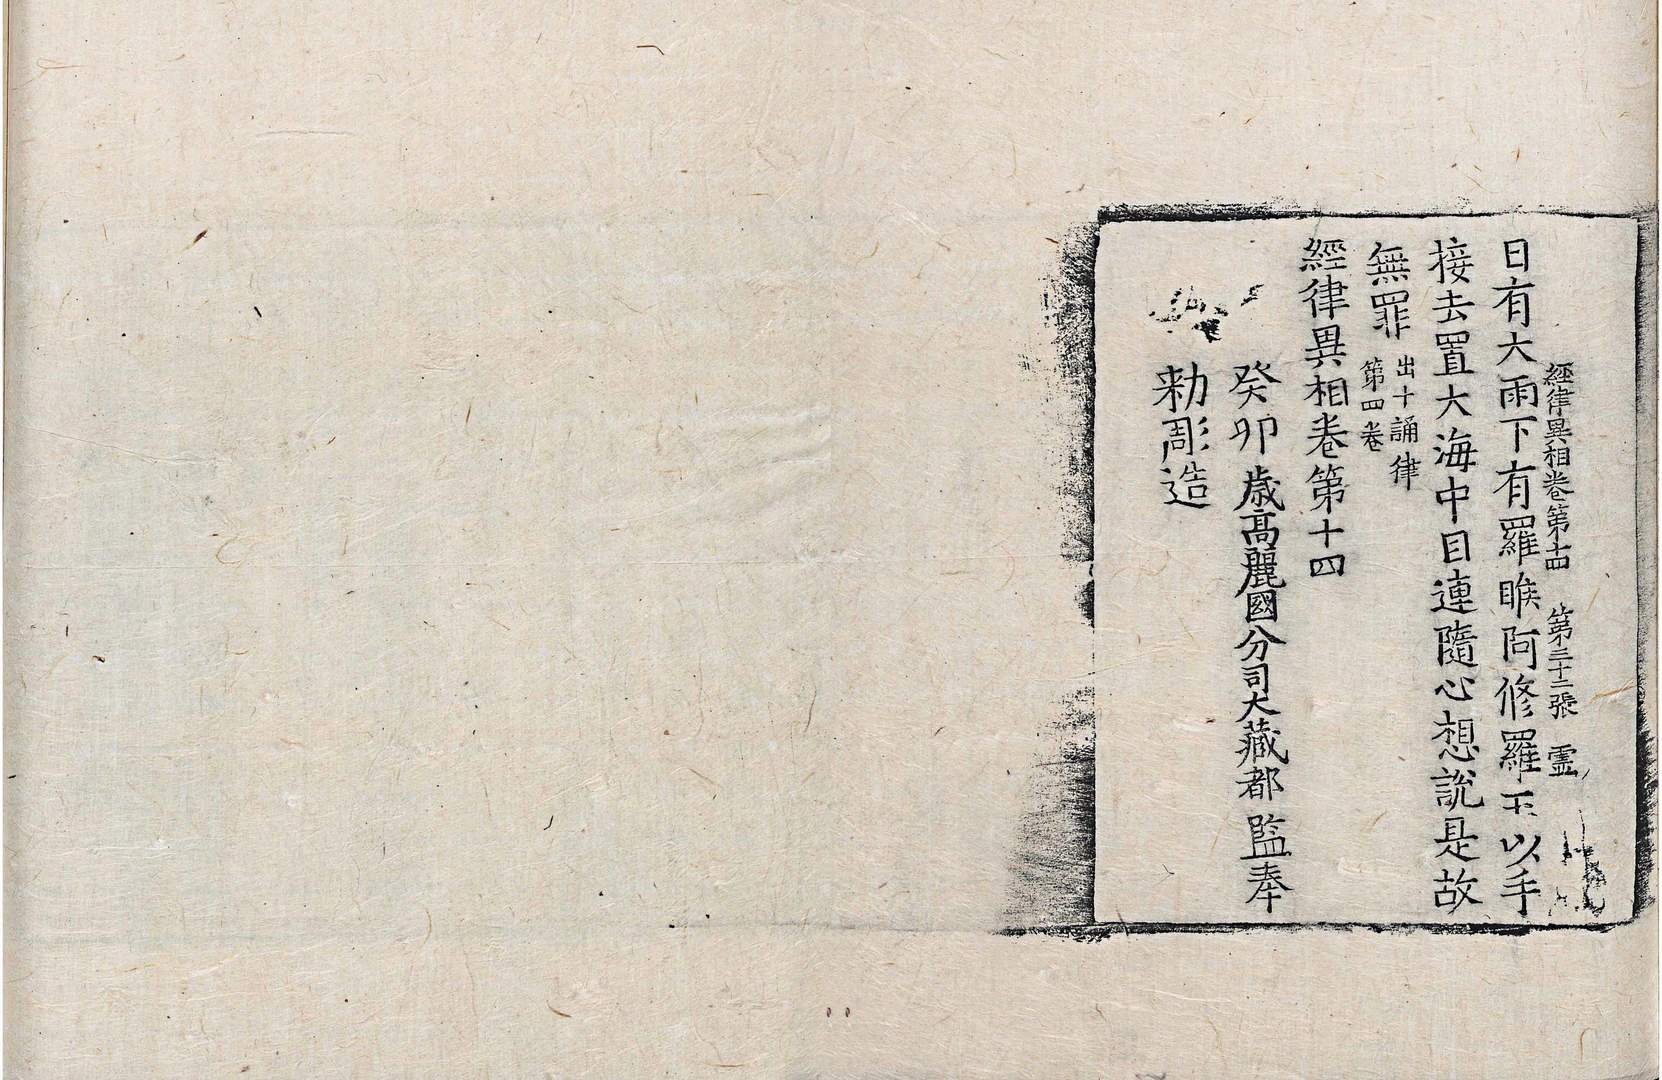 經律異相卷第十四 第三十二張 霊
日有大雨下有羅睺阿修羅王以手
接去置大海中目連隨心想說是故
無罪 出十誦律
第四卷
經律異相卷第十四
癸卯歳高麗國分司大藏都監奉
勅彫造